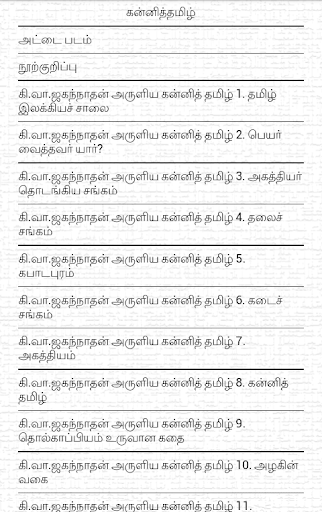 கன்னித்தமிழ்
அட்டை படம்
நூற்குறிப்பு
கி.வா.ஜகந்நாதன் அருளிய கன்னித் தமிழ் 1. தமிழ்
இலக்கியச் சாலை
கி.வா.ஜகந்நாதன் அருளிய கன்னித் தமிழ் 2. பெயர்
வைத்தவர் யார்?
கி.வா.ஜகந்நாதன் அருளிய கன்னித் தமிழ் 3. அகத்தியர்
தொடங்கிய சங்கம்
கி.வா.ஜகந்நாதன் அருளிய கன்னித் தமிழ் 4. தலைச்
சங்கம்
கி.வா.ஜகந்நாதன் அருளிய கன்னித் தமிழ் 5.
கபாடபுரம்
கி.வா.ஜகந்நாதன் அருளிய கன்னித் தமிழ் 6. கடைச்
சங்கம்
கி.வா.ஜகந்நாதன் அருளிய கன்னித் தமிழ் 7.
அகத்தியம்
கி.வா.ஜகந்நாதன் அருளிய கன்னித் தமிழ் 8. கன்னித்
தமிழ்
கி.வா.ஜகந்நாதன் அருளிய கன்னித் தமிழ் 9.
தொல்காப்பியம் உருவான கதை
கி.வா.ஜகந்நாதன் அருளிய கன்னித் தமிழ் 10. அழகின்
வகை
கி.வா.ஜகந்நாதன் அருளிய கன்னித் தமிழ் 11.